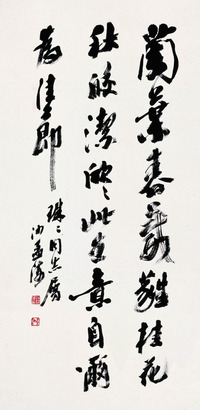 蘭葉春葳蕤桂花
秋皎潔欣〻此生意自爾
為佳節
珠〻同志屬
沙孟海